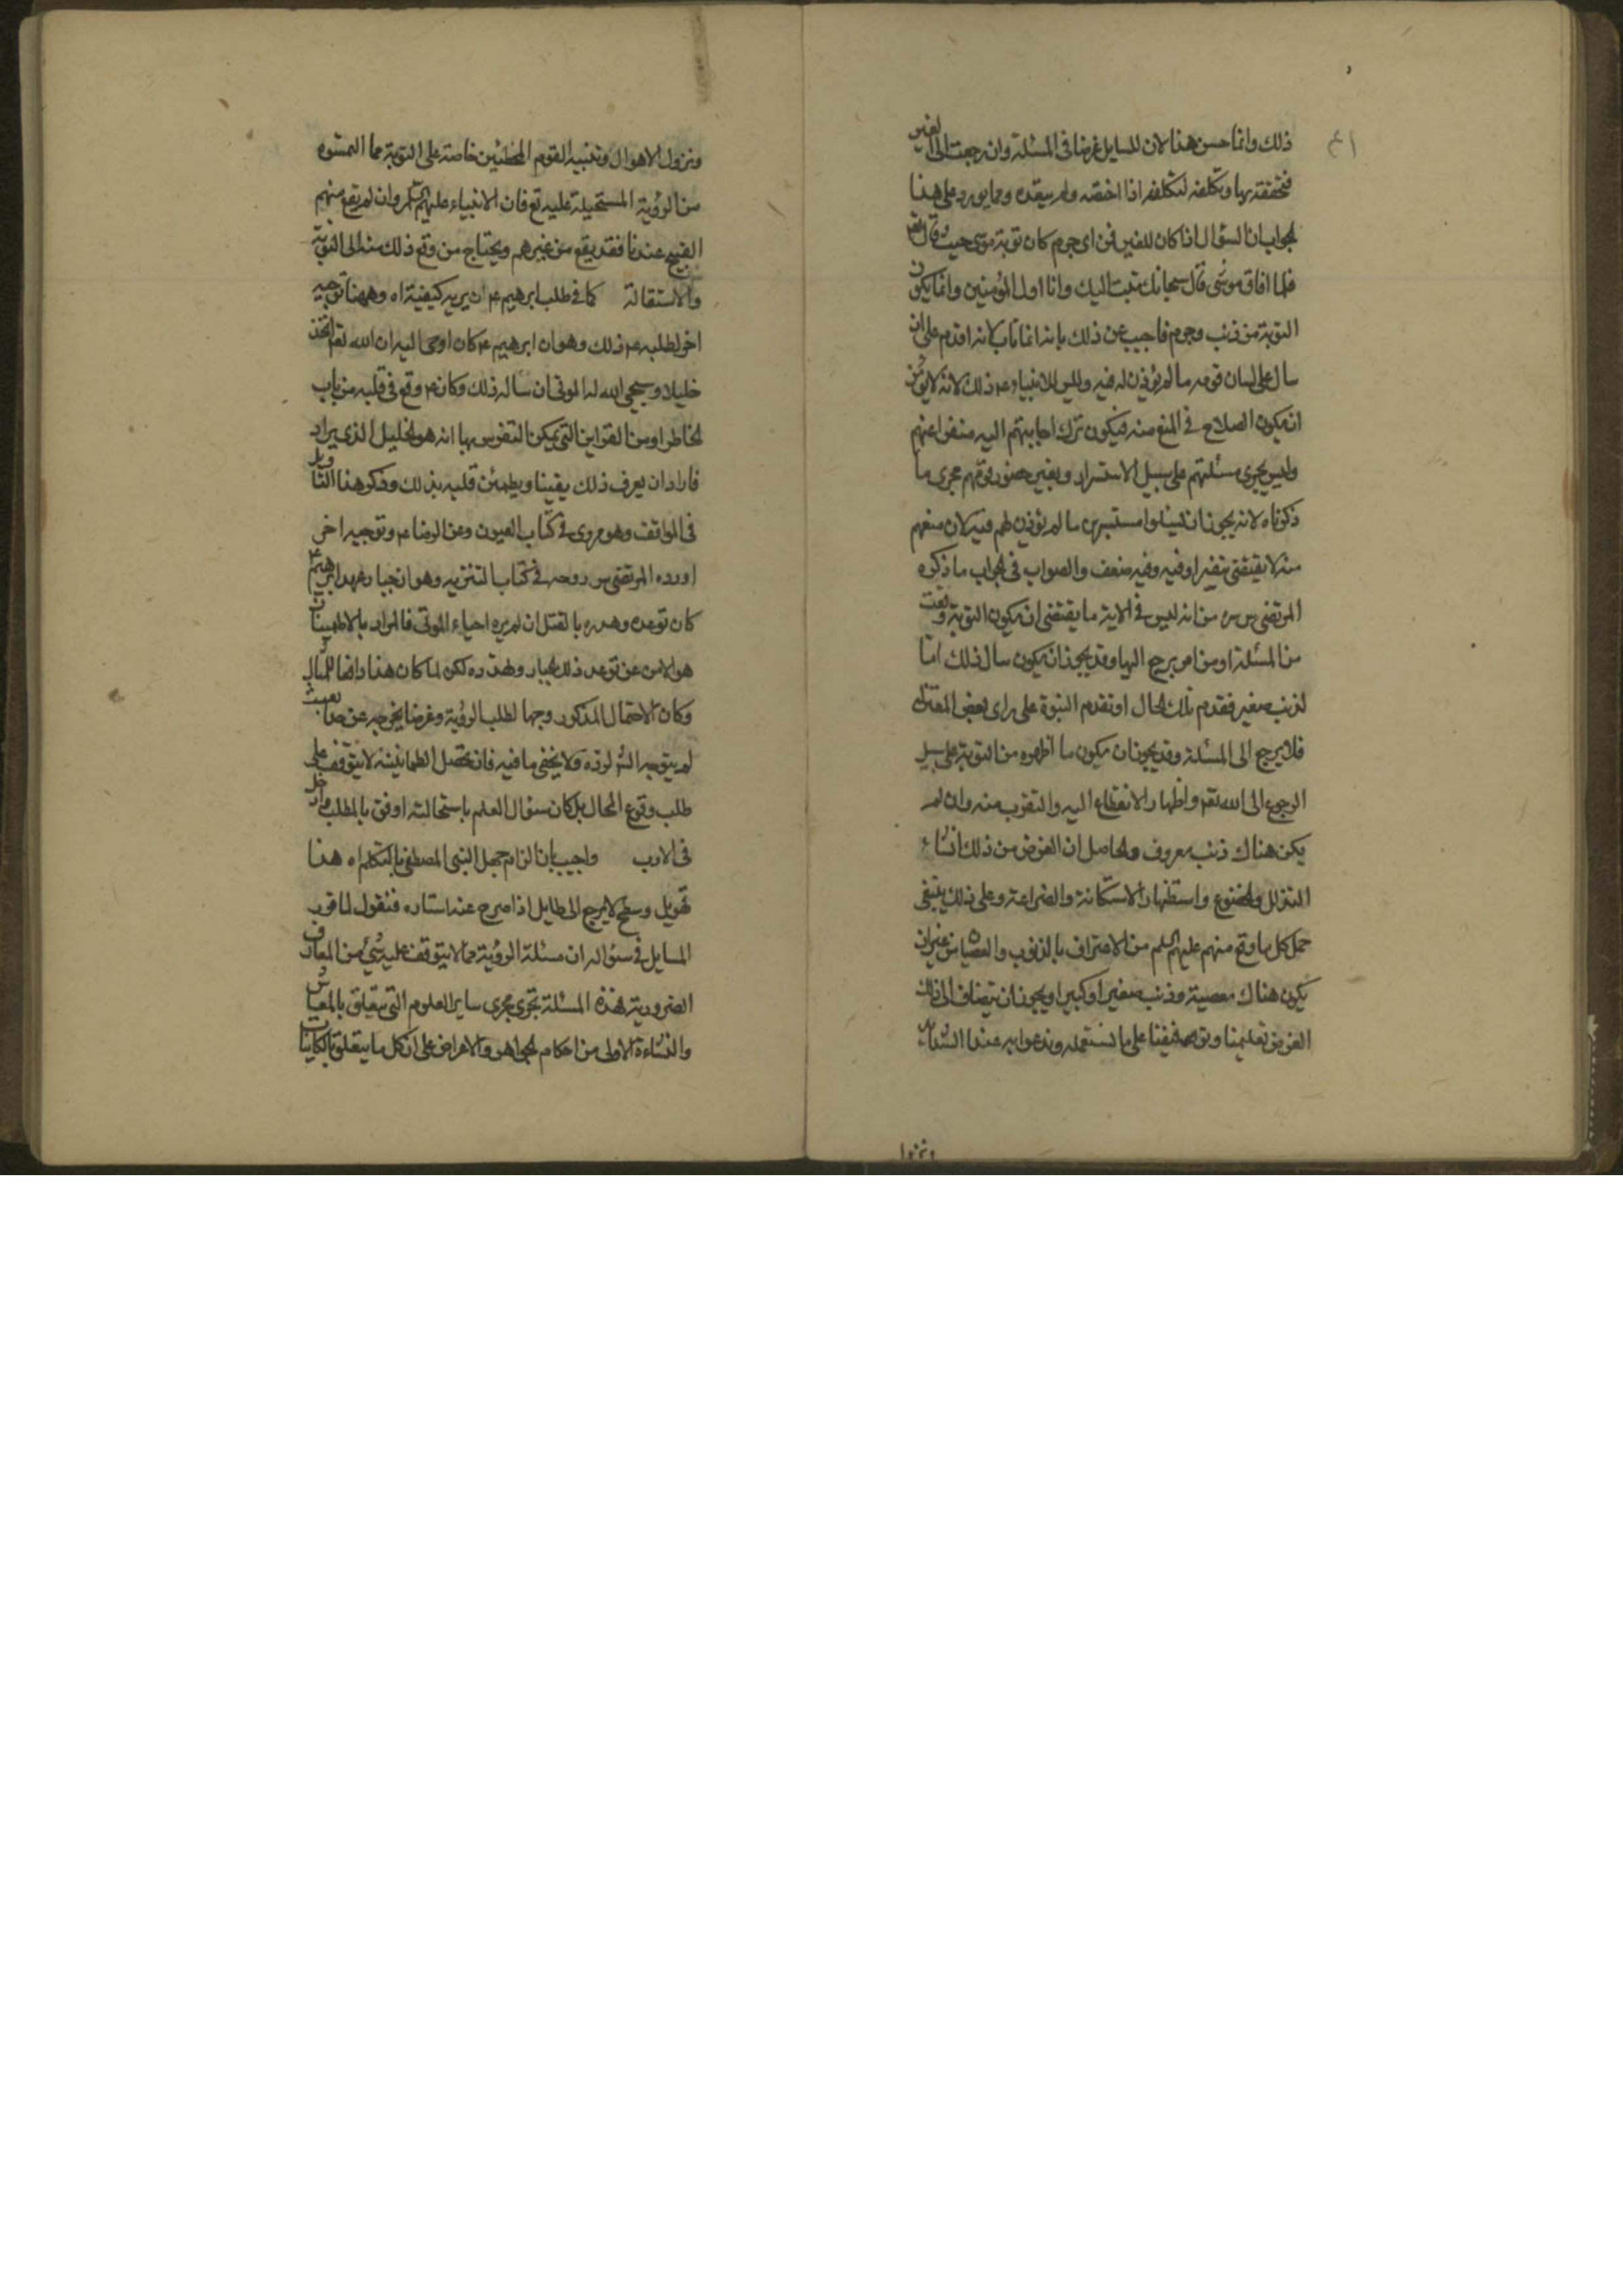 ذلك وانما حسن هذا لان للسايل غرضا فى المسئلة وان رجعت الى الغير
فتحققه بها وتكلفه لتكلفه اذا اختصه ولم يتعده ومما يورد على هذا
الجواب ان السؤال اذا كان للغير فمن اى جرم كان توبة موسى حيث قال تعه
فلما افاق موسى قال سبحانك تبت اليك وانا اول المؤمنين وانما يكون
التوبة من ذنب وجرم فاجيب عن ذلك بانه انما تاب لانه اقدم على ان
سال على لسان قومه ما لم يؤذن له فيه وليس للانبياء ع ذلك لانه لا يؤمن
ان يكون الصلاح فى المنع منه فيكون ترك اجابتهم اليه منفرا عنهم
وليس يجرى مسئلتهم على سبيل الاستسرار وبغير حضور قومهم مجرى ما
ذكرناه لانه يجوز ان يسئلوا مستسرين ما لم يؤذن لهم فيه لان منعهم
منه لا يقتضى تنفيرا وفيه وفيه ضعف والصواب فى الجواب ما ذكره
المرتضى س سره من انه ليس فى الاية ما يقتضى ان يكون التوبة وقعت
من المسئلة او من امر يرجع اليها وقد يجوز ان يكون سال ذلك اما
لذنب صغير فقدم تلك الحال او تقدم النبوة على راى بعض المعتزلة
فلا يرجع الى المسئلة وقد يجوز ان يكون ما اظهره من التوبة على سبيل
الرجوع الى الله تعه واظهار الانقطاع اليه والتقرب منه وان لم
يكن هناك ذنب معروف والحاصل ان الغرض من ذلك انشاء
التذلل والخضوع واستظهار الاستكانة والضراعة وعلى ذلك ينبغى
حمل كل ما وقع منهم عليهم السلم من الاعتراف بالذنوب والعصيان من غير ان
يكون هناك معصية وذنب صغيرا وكبيرا ويجوز ان يضاف الى ذلك
الغرض تعليمنا وتوفيقنا على ما نستعمله وندعوا به عند الشدائد
ونزول
ونزول الاهوال وتنبيه القوم المخطئين خاصة على التوبة مما التمسوه
من الرؤية المستحيلة عليه تع فان الانبياء عليهم السلم وان لم يقع منهم
القبيح عندنا فقد يقع من غيرهم ويحتاج من وقع ذلك منه الى التوبة
والاستقالة كما فى طلب ابرهيم ع ان يريه كيفية اه وههنا توجيه
اخر لطلبه ع ذلك وهو ان ابرهيم ع كان اوحى اليه ان الله تعه اتخذ
خليلا ويحيى الله له الموتى ان ساله ذلك وكان ع وقع فى قلبه من باب
الخاطر او من القراين التى يمكن التفرس بها انه هو الخليل الذى يراد
فاراد ان يعرف ذلك يقينا ويطمئن قلبه بذلك وذكر هذا التاويل
فى المواقف وهو مروى فى كتاب العيون وعن الرضا ع وتوجيه اخر
اورده المرتضى س روحه فى كتاب التنزيه وهو ان جبار عهد ابرهيم ع
كان توعده وهدده بالقتل ان لم يره احياء الموتى فالمراد بالاطمينان
هو الامن عن توعد ذلك الجبار وتهدده لكن لما كان هذا دافعا للسؤال
وكان الاحتمال المذكور وجها لطلب الرؤية وغرضا يخرجه عن حد العبث
لم يتوجه ولا يخفى ما فيه فان تحصل الطمانينة لا يتوقف على
طلب وقوع المحال بل كان سؤال العلم باستحالته اوفق بالمطلب وادخل
فى الادب واجيب بان الزام جهل النبى المصطفى بالتكلم اه هذا
تهويل وسطح لا يرجع الى طايل اذا صرح عند استاره فنقول لما قرب
المسايل فى سؤاله ان مسئلة الرؤية مما لا يتوقف عليه شئ من المعارف
الضرورية فهذه المسئلة تجرى مجرى ساير العلوم التى يتعلق بالمعاش
والنشاءة الاولى من احكام الجواهر والاعراض على ان كل ما يتعلق بالكاينات